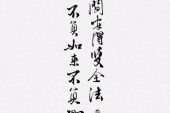 間安得雙全法
不負如來不負卿